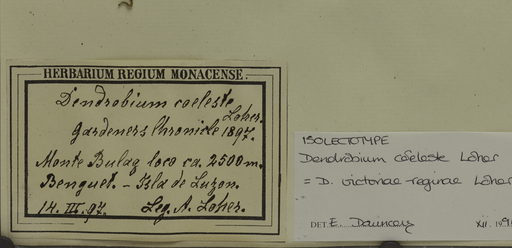 HERBARIUM REGIUM MONACENSE.
Dendrobium coeleste
Loher.
Gardeners Chronicle 1897.
Monte Bulag loco ca. 2500 m.
Benguet. - Isla de Luzon.
14. III. 97. Leg. A. Loher.
ISOLECTOTYPE
Dendrobium coeleste Loher
= D. victoriae-reginae Loher
DET. E. Dauncey XII. 19